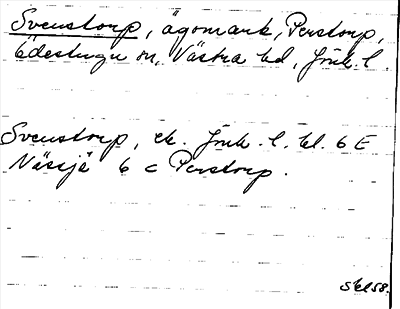 Svenstorp, ägomark, Perstorp,
Ödestugu sn, Västra hd, Jönk. l.
Svenstorp, ek. Jönk. l. bl. 6 E
Nässjö 6 c Perstorp.